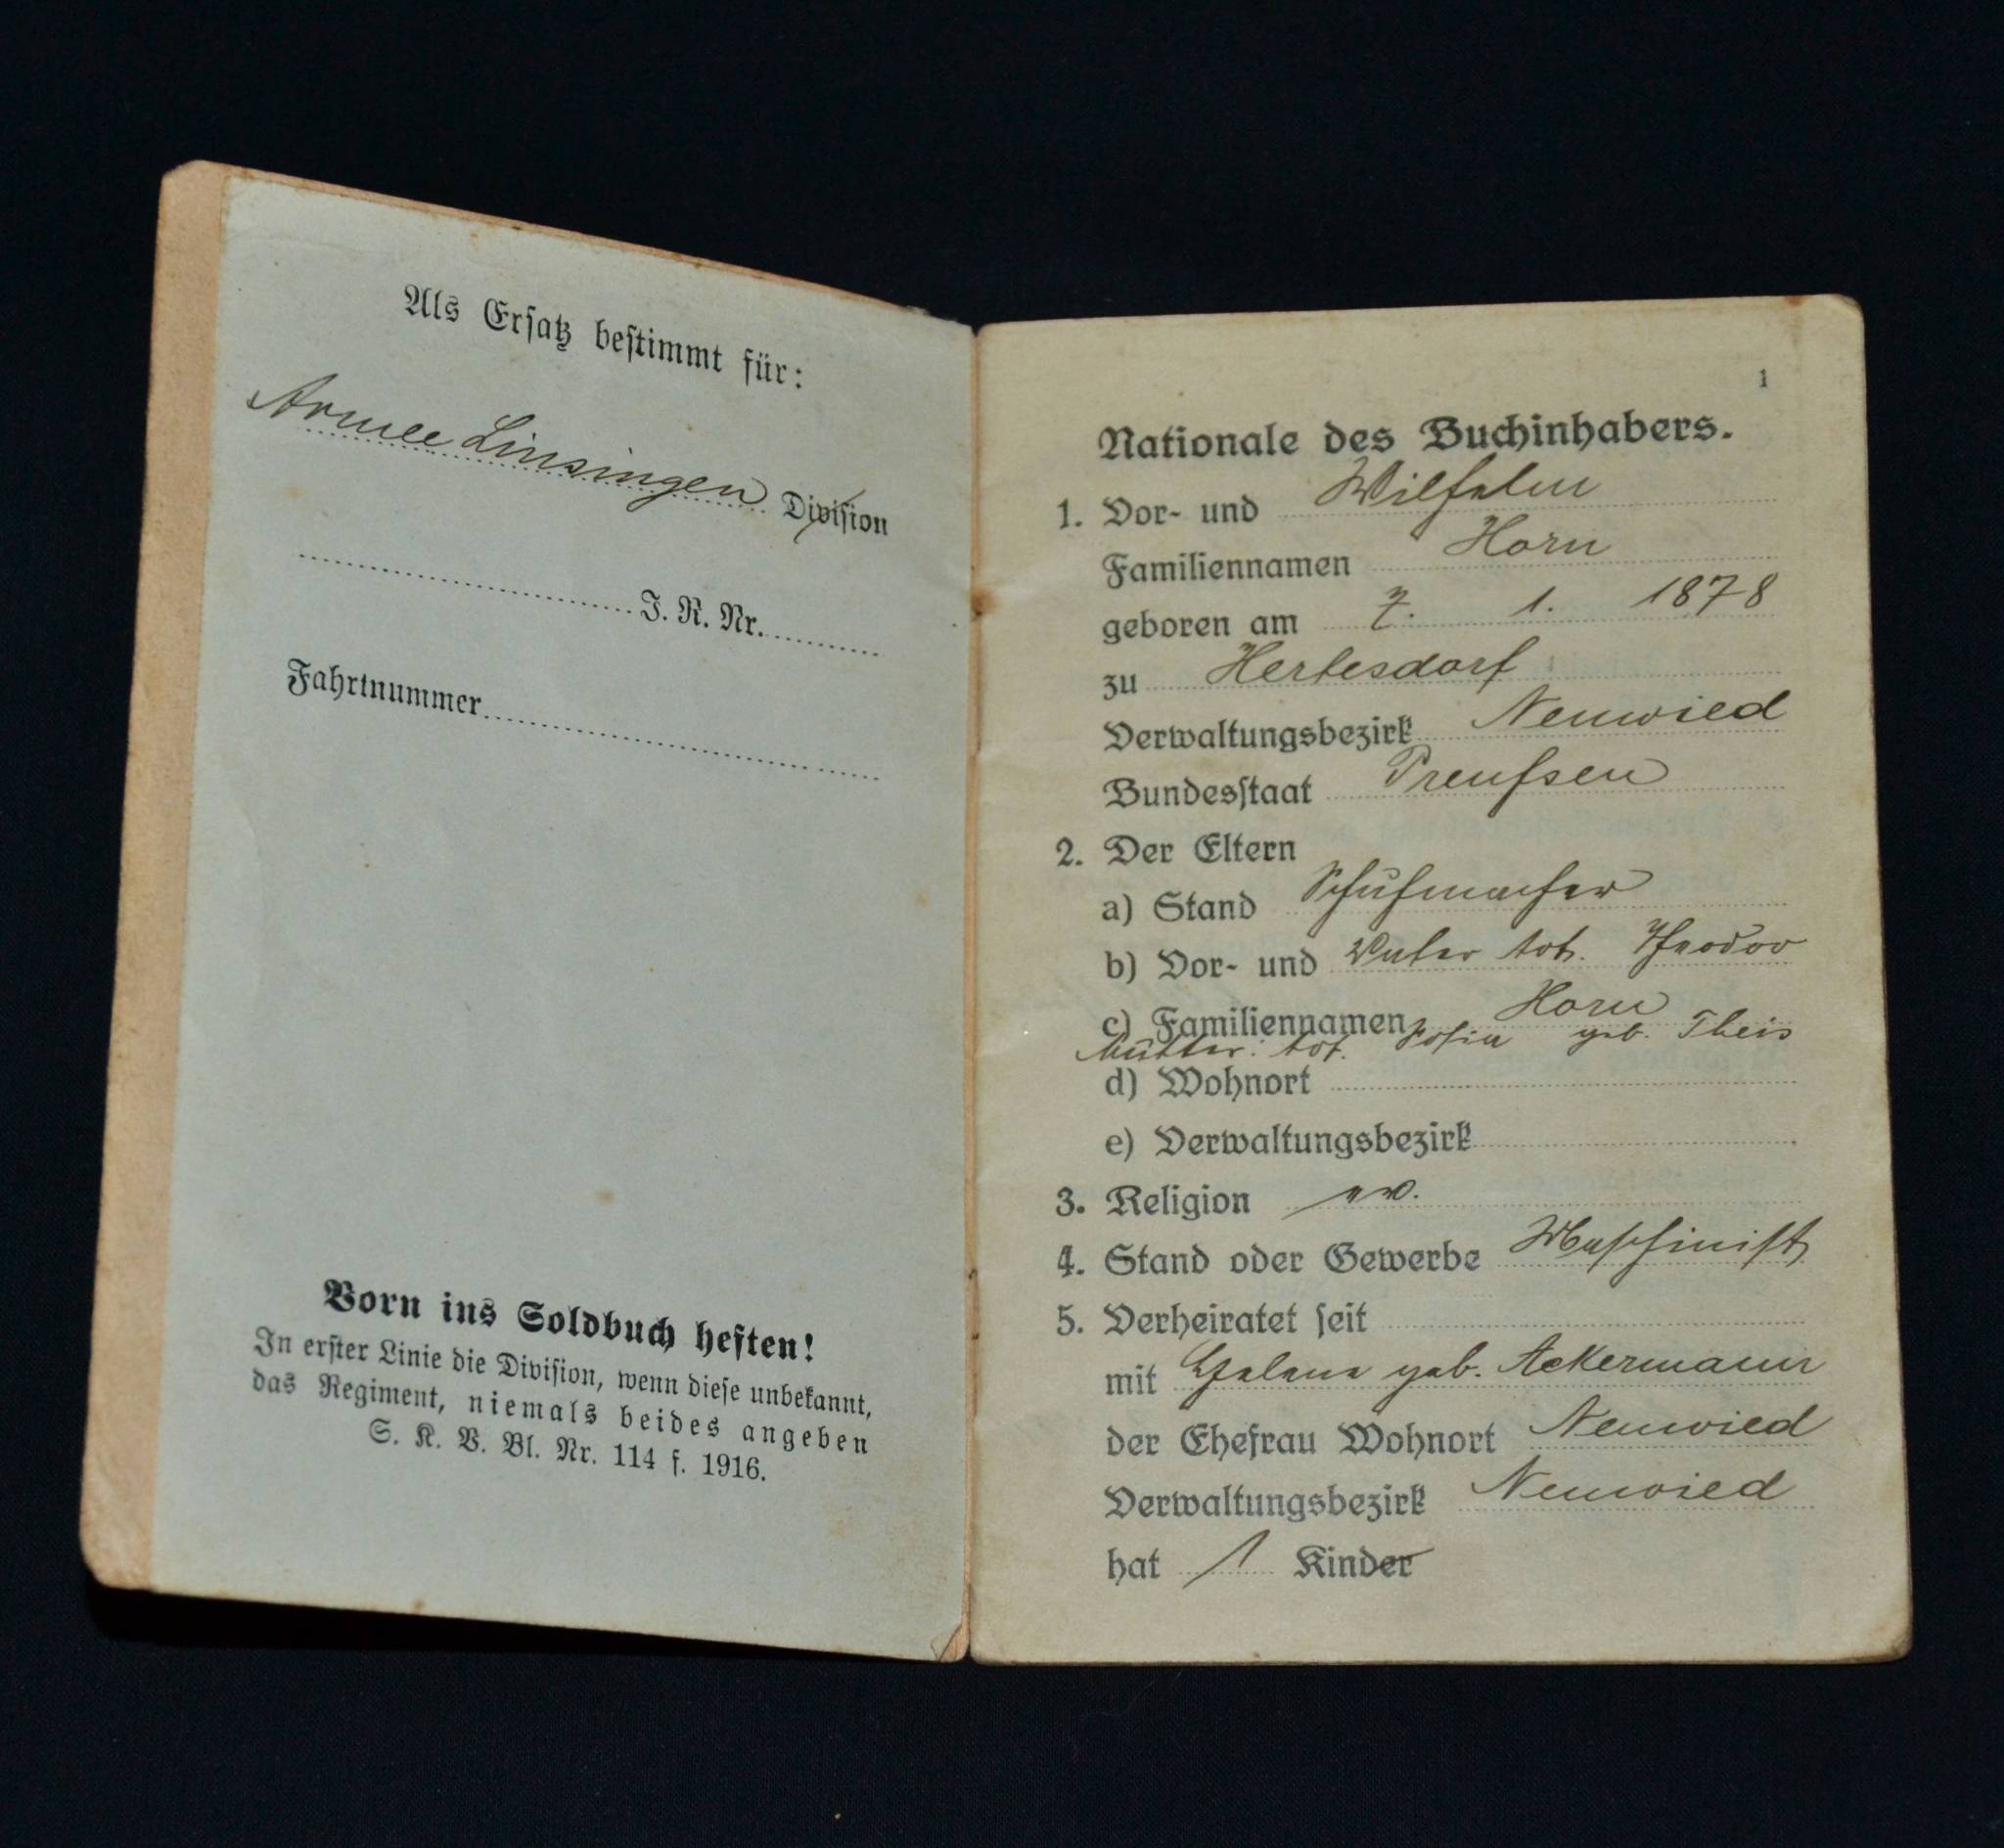 Als Ersatz bestimmt für:
Armee Linsingen Division
J. R. Nr.
Fahrtnummer
Vorn ins Soldbuch heften!
In erster Linie die Division, wenn diese unbekannt,
das Regiment, niemals beides angeben
S. K. V. Bl. Nr. 114 f. 1916.
1
Nationale des Buchinhabers.
1. Vor- und Wilhelm
Familiennamen Horn
geboren am 7. 1. 1878
zu
Verwaltungsbezirk Neuwied
Bundesstaat Preußen
2. Der Eltern
a) Stand Schuhmacher
b) Vor- und Vater tot. Theodor
c) Familiennamen Horn
Mutter: tot. Sofia geb. Theis
d) Wohnort
e) Verwaltungsbezirk
3. Religion ev.
4. Stand oder Gewerbe Maschinist
5. Verheiratet seit
mit Helene geb. Ackermann
der Ehefrau Wohnort Neuwied
Verwaltungsbezirk Neuwied
hat 1 Kinder